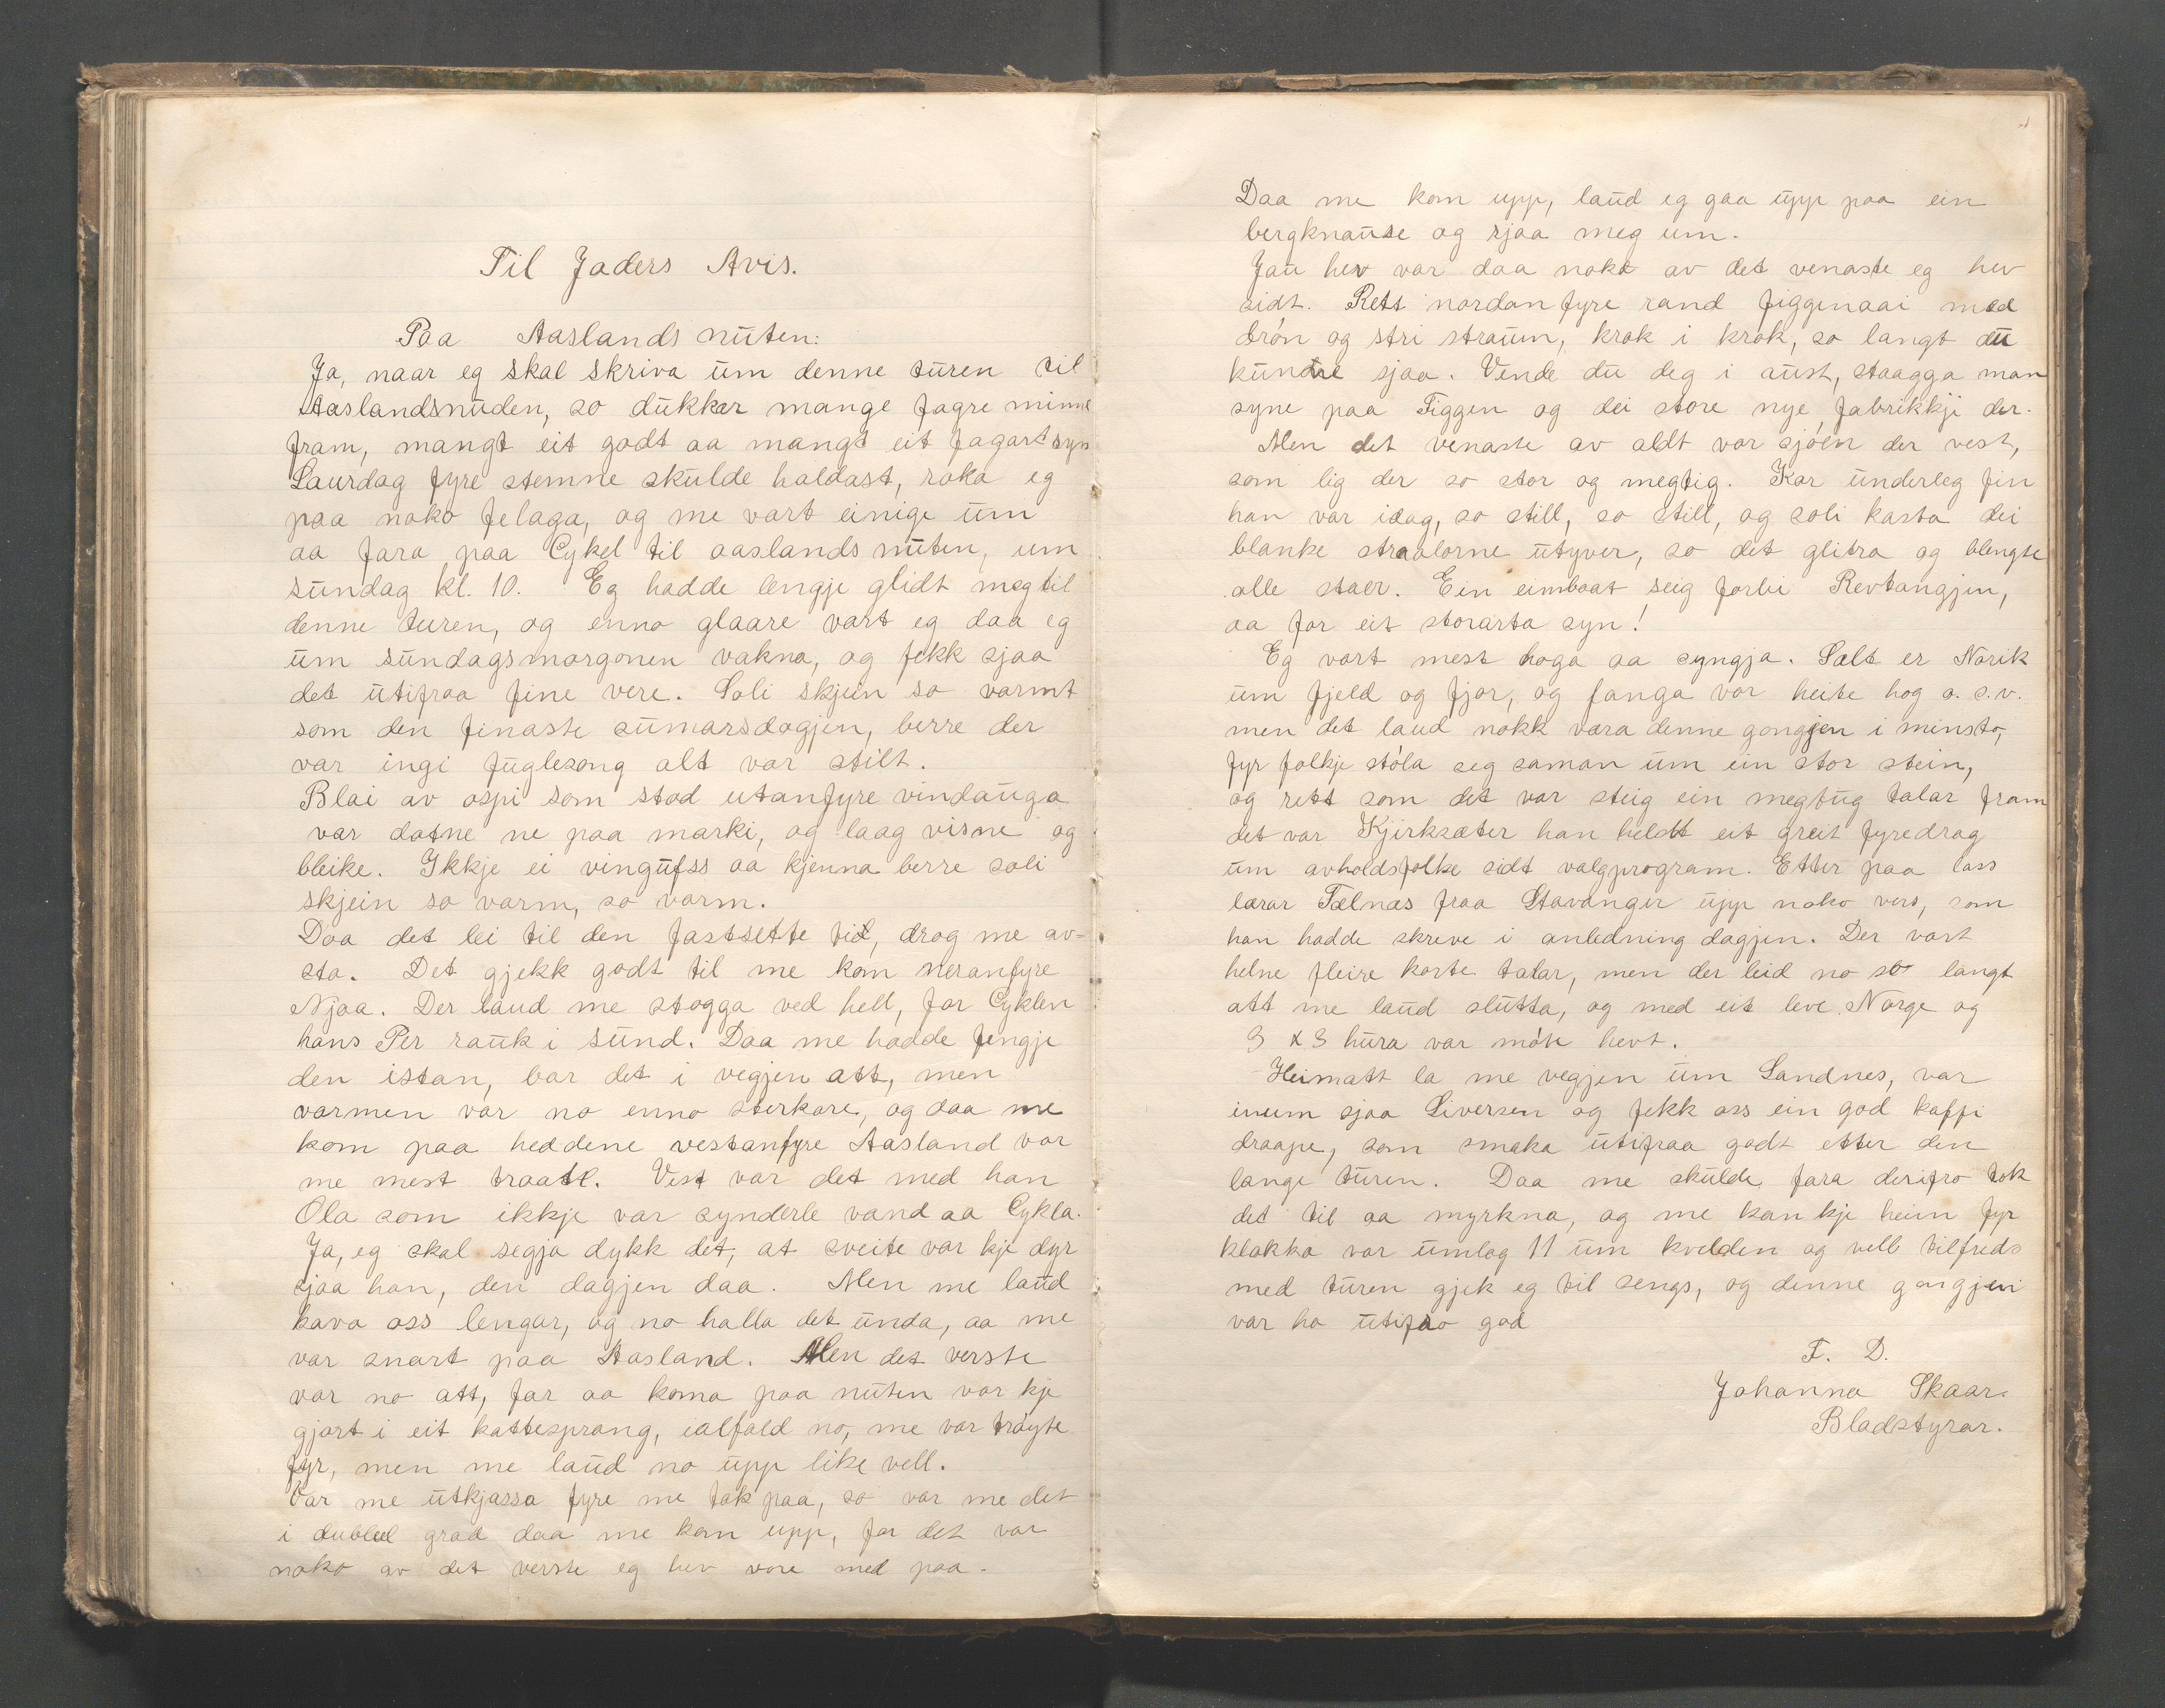 Til Jaders Avis.
Paa Aaslandsnuten:
Ja, naar eg skal skriva um denne turen til
Aaslandsnuden, so dukkar mange fagre minne
fram, mangt eit godt aa mangt eit fagart syn
Laurdag fyre stemne skulde haldast, raka eg
paa noko felaga, og me vart einige um
aa fara paa Cykel til aaslandsnuten, um
sundag kl. 10. Eg hadde lengje glidt meg til
denne turen, og enno glaare vart eg daa eg
um sundagsmorgonen vakna, og fekk sjaa
det utifraa fine vere. Soli skjein so varmt
som den finaste sumarsdagjen, berre der
var ingi fuglesong alt var stilt.
Blai av ospi som stod utanfyre vindauga
var datne ne paa marki, og laag visne og
bleike. Ikkje ei vingufss aa kjenna berre soli
skjein so varm, so varm.
Daa det lei til den fastsette tid, drog me av-
sta. Det gjekk godt til me kom neranfyre
Njaa. Der laud me stogga ved hell, for Cyklen
hans Per rauk i sund. Daa me hadde fengje
den istan, bar det i vegjen att, men
varmen var no enno sterkare, og daa me
kom paa heddene vestanfyre Aasland var
me mest traate. Vest var det med han
Ola som ikkje var synderle vand aa Cykla.
Ja, eg skal segja dykk det, at sveite var kje dyr
sjaa han, den dagjen daa. Men me laud
kava oss lengar, og no halla det unda, aa me
var snart paa Aasland. Men det verste
var no att, for aa koma paa nuten var kje
gjort i eit kattesprang, ialfald no, me var trøyte
fyr, men me laud no upp like vell.
Var me utkjassa fyre me tok paa, so var me det
i dubbel grad daa me kom upp, for det var
noko av det verste eg hev vore med paa.
Daa me kom upp, laud eg gaa upp paa ein
bergknause og sjaa meg um.
Jau hev var daa noko av det venaste eg hev
sidt. Rett nordanfyre rand Figgenaai med
drøn og stri straum, krok i krok, so langt du
kunde sjaa. Vende du deg i aust, staagga man
syne paa Figgen og dei store nye fabrikkji der.
Men det venaste av aldt var sjóen der vest,
som lig der so stor og megtig. Kor underleg fin
han var idag, so still, so still, og soli kasta dei
blanke straalorne utyver, so det glitra og blengte
alle staer. Ein eimbaat seig forbi Revtangjen,
aa for eit storarta syn!
Eg vart mest hoga aa syngja. Salt er Norik
um fjeld og fjor, og fanga vor heite hog o. s. v.
men det laud nokk vera denne gongjen i minsto,
fyr folkje stóla seg saman um ein stor stein,
og rett som det var steig ein megtug talar fram
det var Kjirksæter han heldt eit greit fyredrag
um avholdsfolke sidt valgprogram. Etter paa lass
lærar Tælnæs fraa Stavanger upp noko vers, som
han hadde skreve i anledning dagjen. Der vart
helne fleire korte talar, men der leid no so langt
att me laud slutta, og med eit leve Norge og
3 x 3 hura var móte hevt.
Heimatt la me vegjen um Sandnes, var
inum sjaa Siversen og fekk oss ein god kaffi
draape, som smaka utifraa godt etter den
lange turen. Daa me skulde fara derifro tok
det til aa myrkna, og me kan kje heim fyr
klokka var umlag 11 um kvelden og vell tilfreds
med turen gjek eg til sengs, og denne gongjen
var ho utifrao god
F. D.
Johanna Skaar.
Bladstyrar.